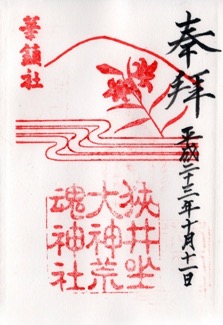 奉拝
平成二十三年十月十一日
華鎮社
狭井坐
大神荒
魂神社